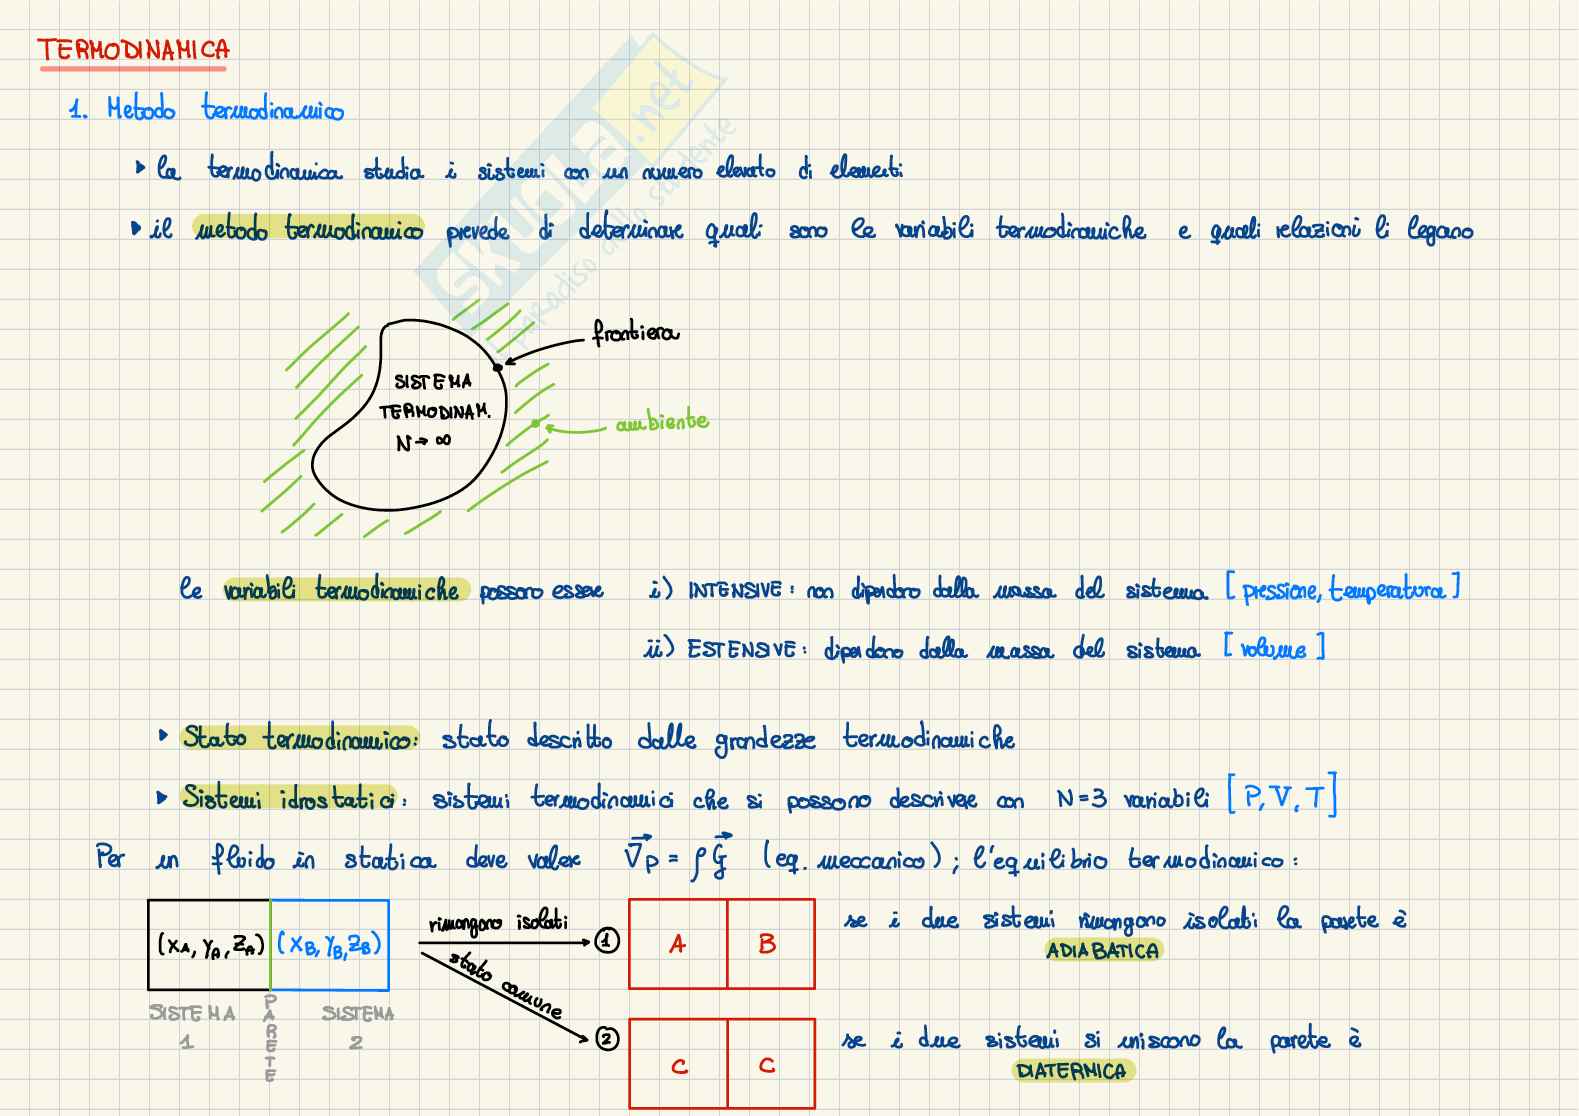 TERMODINAMICA
1. Metodo termodinamico
▸ la termodinamica studia i sistemi con un numero elevato di elementi
▸ il metodo termodinamico prevede di determinare quali sono le variabili termodinamiche e quali relazioni li legano
SKUOLA.net
paradiso dello studente
frontiera
SISTEMA
TERMODINAM.
N → ∞
ambiente
le variabili termodinamiche possono essere i) INTENSIVE: non dipendono dalla massa del sistema [pressione, temperatura]
ii) ESTENSIVE: dipendono dalla massa del sistema [volume]
▸ Stato termodinamico: stato descritto dalle grandezze termodinamiche
▸ Sistemi idrostatici: sistemi termodinamici che si possono descrivere con N=3 variabili [P, V, T]
Per un fluido in statica deve valere ∇⃗p = ρg⃗ (eq. meccanico); l'equilibrio termodinamico:
(XA, YA, ZA) (XB, YB, ZB)
SISTEMA 1
PARETE
SISTEMA 2
rimangono isolati
stato comune
1
A B
se i due sistemi rimangono isolati la parete è
ADIABATICA
2
C C
se i due sistemi si uniscono la parete è
DIATERMICA